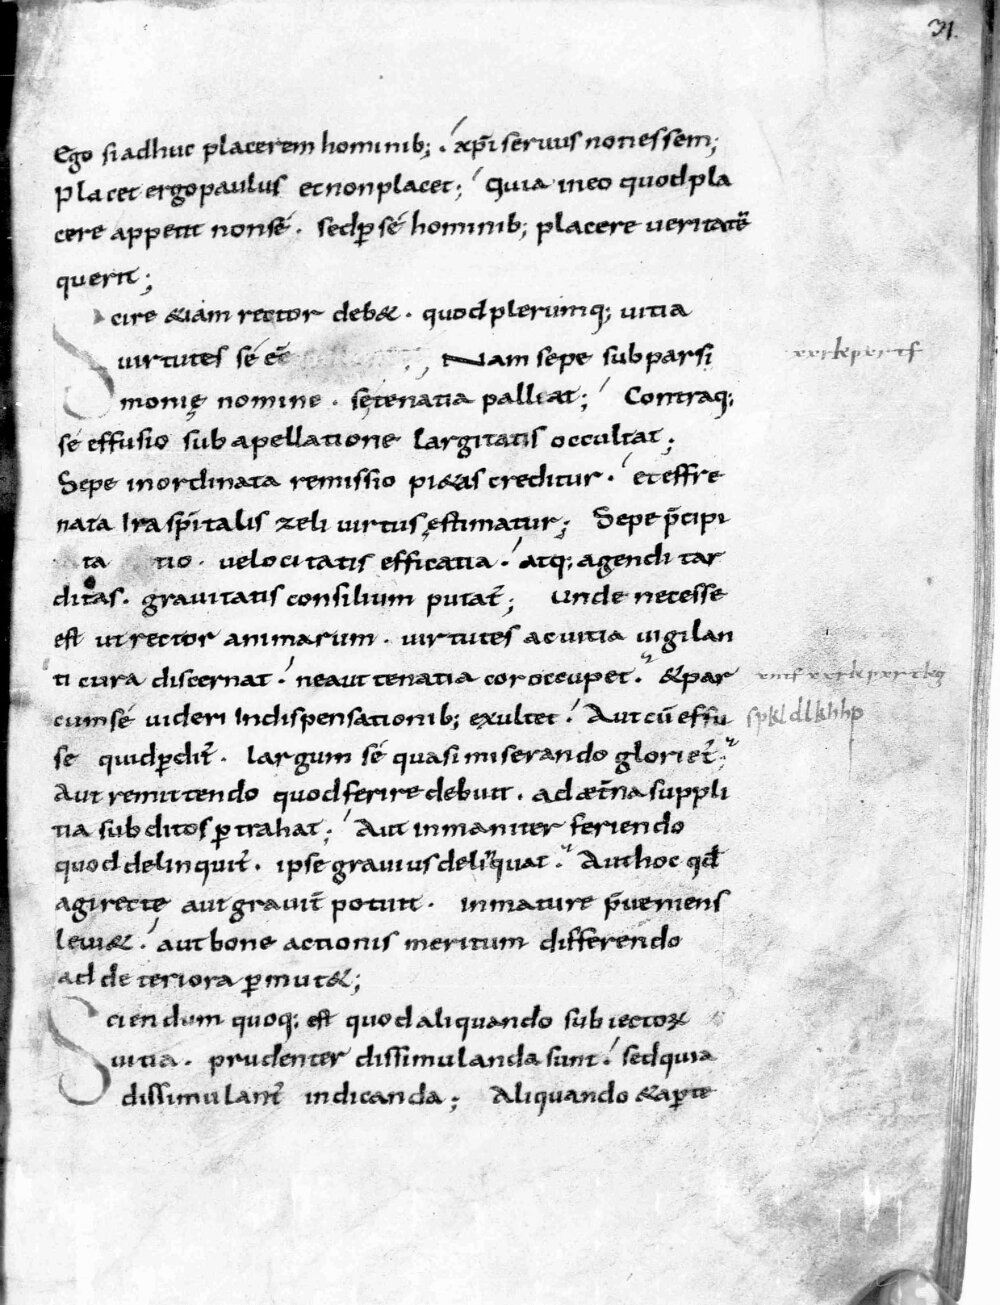 31.
Ego si adhuc placerem hominib; . xp̄i servus non essem;
Placet ergo paulus et non placet; Quia in eo quod pla
cere appetit non sé. sed ꝑ sé hominib; placere veritatē
querit;
Scire &iam rector deb&. quod plerumq; uitia
uirtutes sé eē Nam sepe sub parsi
monię nomine. se tenatia palliat; Contraq;
sé effusio sub apellatione largitatis occultat;
Sepe inordinata remissio pi&as creditur. et effre
nata Ira spiritalis zeli uirtus ęstimatur; Sepe p̄cipi
ta tio. velocitatis efficatia. atq; agendi tar
ditas. gravitatis consilium putat̄; Unde necesse
est ut rector animarum. uirtutes ac uitia uigilan
ti cura discernat. ne aut tenatia cor occupet. & par
cum sé uideri In dispensationib; exultet. Aut cū effu
se quid ꝑdit̄. largum sé quasi miserando gloriet̄;
Aut remittendo quod ferire debuit. ad aet̄na suppli
tia subditos ꝑtrahat; Aut inmaniter feriendo
quod delinquit̄. ipse gravius deliquat. Aut hoc qđ
agi recte aut gravit̄ potuit. inmature p̄veniens
leui&. aut bone actionis meritum differendo
ad deteriora ꝑmut&;
Sciendum quoq; est quod aliquando subiectoꝝ
uitia. prudenter dissimulanda sunt. sed quia
dissimulant̄ indicanda; Aliquando & aꝑte